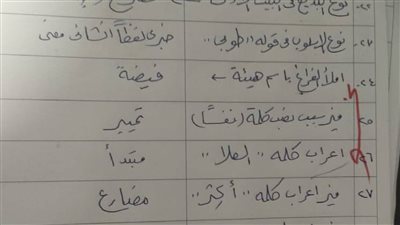 ٢٢. نوع البديع في البيت
٢٣. نوع الأسلوب في قوله "طوبى" خبري لفظاً انشائي معنى
٢٤. املأ الفراغ باسم هيئة ← فيضة
٢٥ ميز سبب نصب كلمة (نفسًا) تمييز
٢٦ اعراب كلمه "العلا" مبتدأ
٢٧ ميز اعراب كلمه "أكثر" مضارع